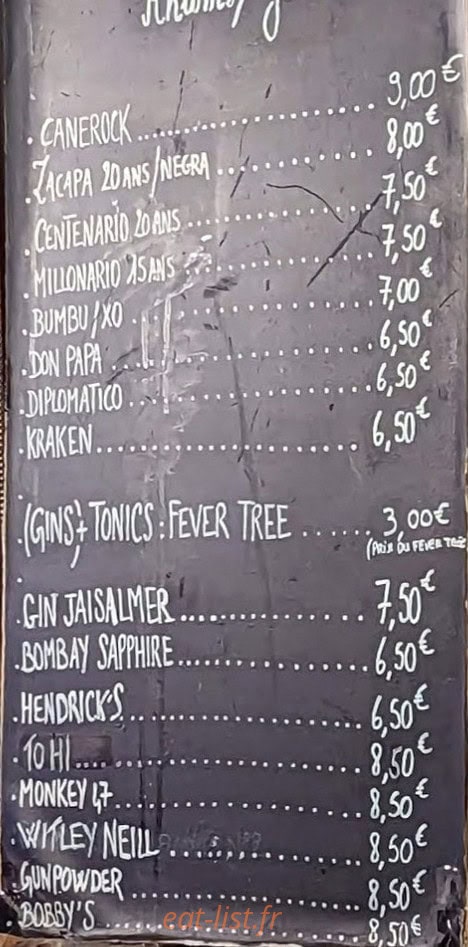 . CANEROCK .......................... 9,00€
. ZACAPA 20 ANS/NEGRA ............ 8,00€
. CENTENARIO 20 ANS ............... 7,50€
. MILLONARIO 15 ANS ............... 7,50€
. BUMBU/XO ........................ 7,00€
. DON PAPA ........................ 6,50€
. DIPLOMATICO ..................... 6,50€
. KRAKEN .......................... 6,50€
. (GINS) TONICS : FEVER TREE ...... 3,00€
(PRIX DU FEVER TREE
. GIN JAISALMER ................... 7,50€
. BOMBAY SAPPHIRE ................. 6,50€
. HENDRICK'S ...................... 6,50€
. TO HI ........................... 8,50€
. MONKEY 47 ....................... 8,50€
. WITLEY NEILL .................... 8,50€
. GUNPOWDER ....................... 8,50€
. BOBBY'S ......................... 8,50€
eat-list.fr